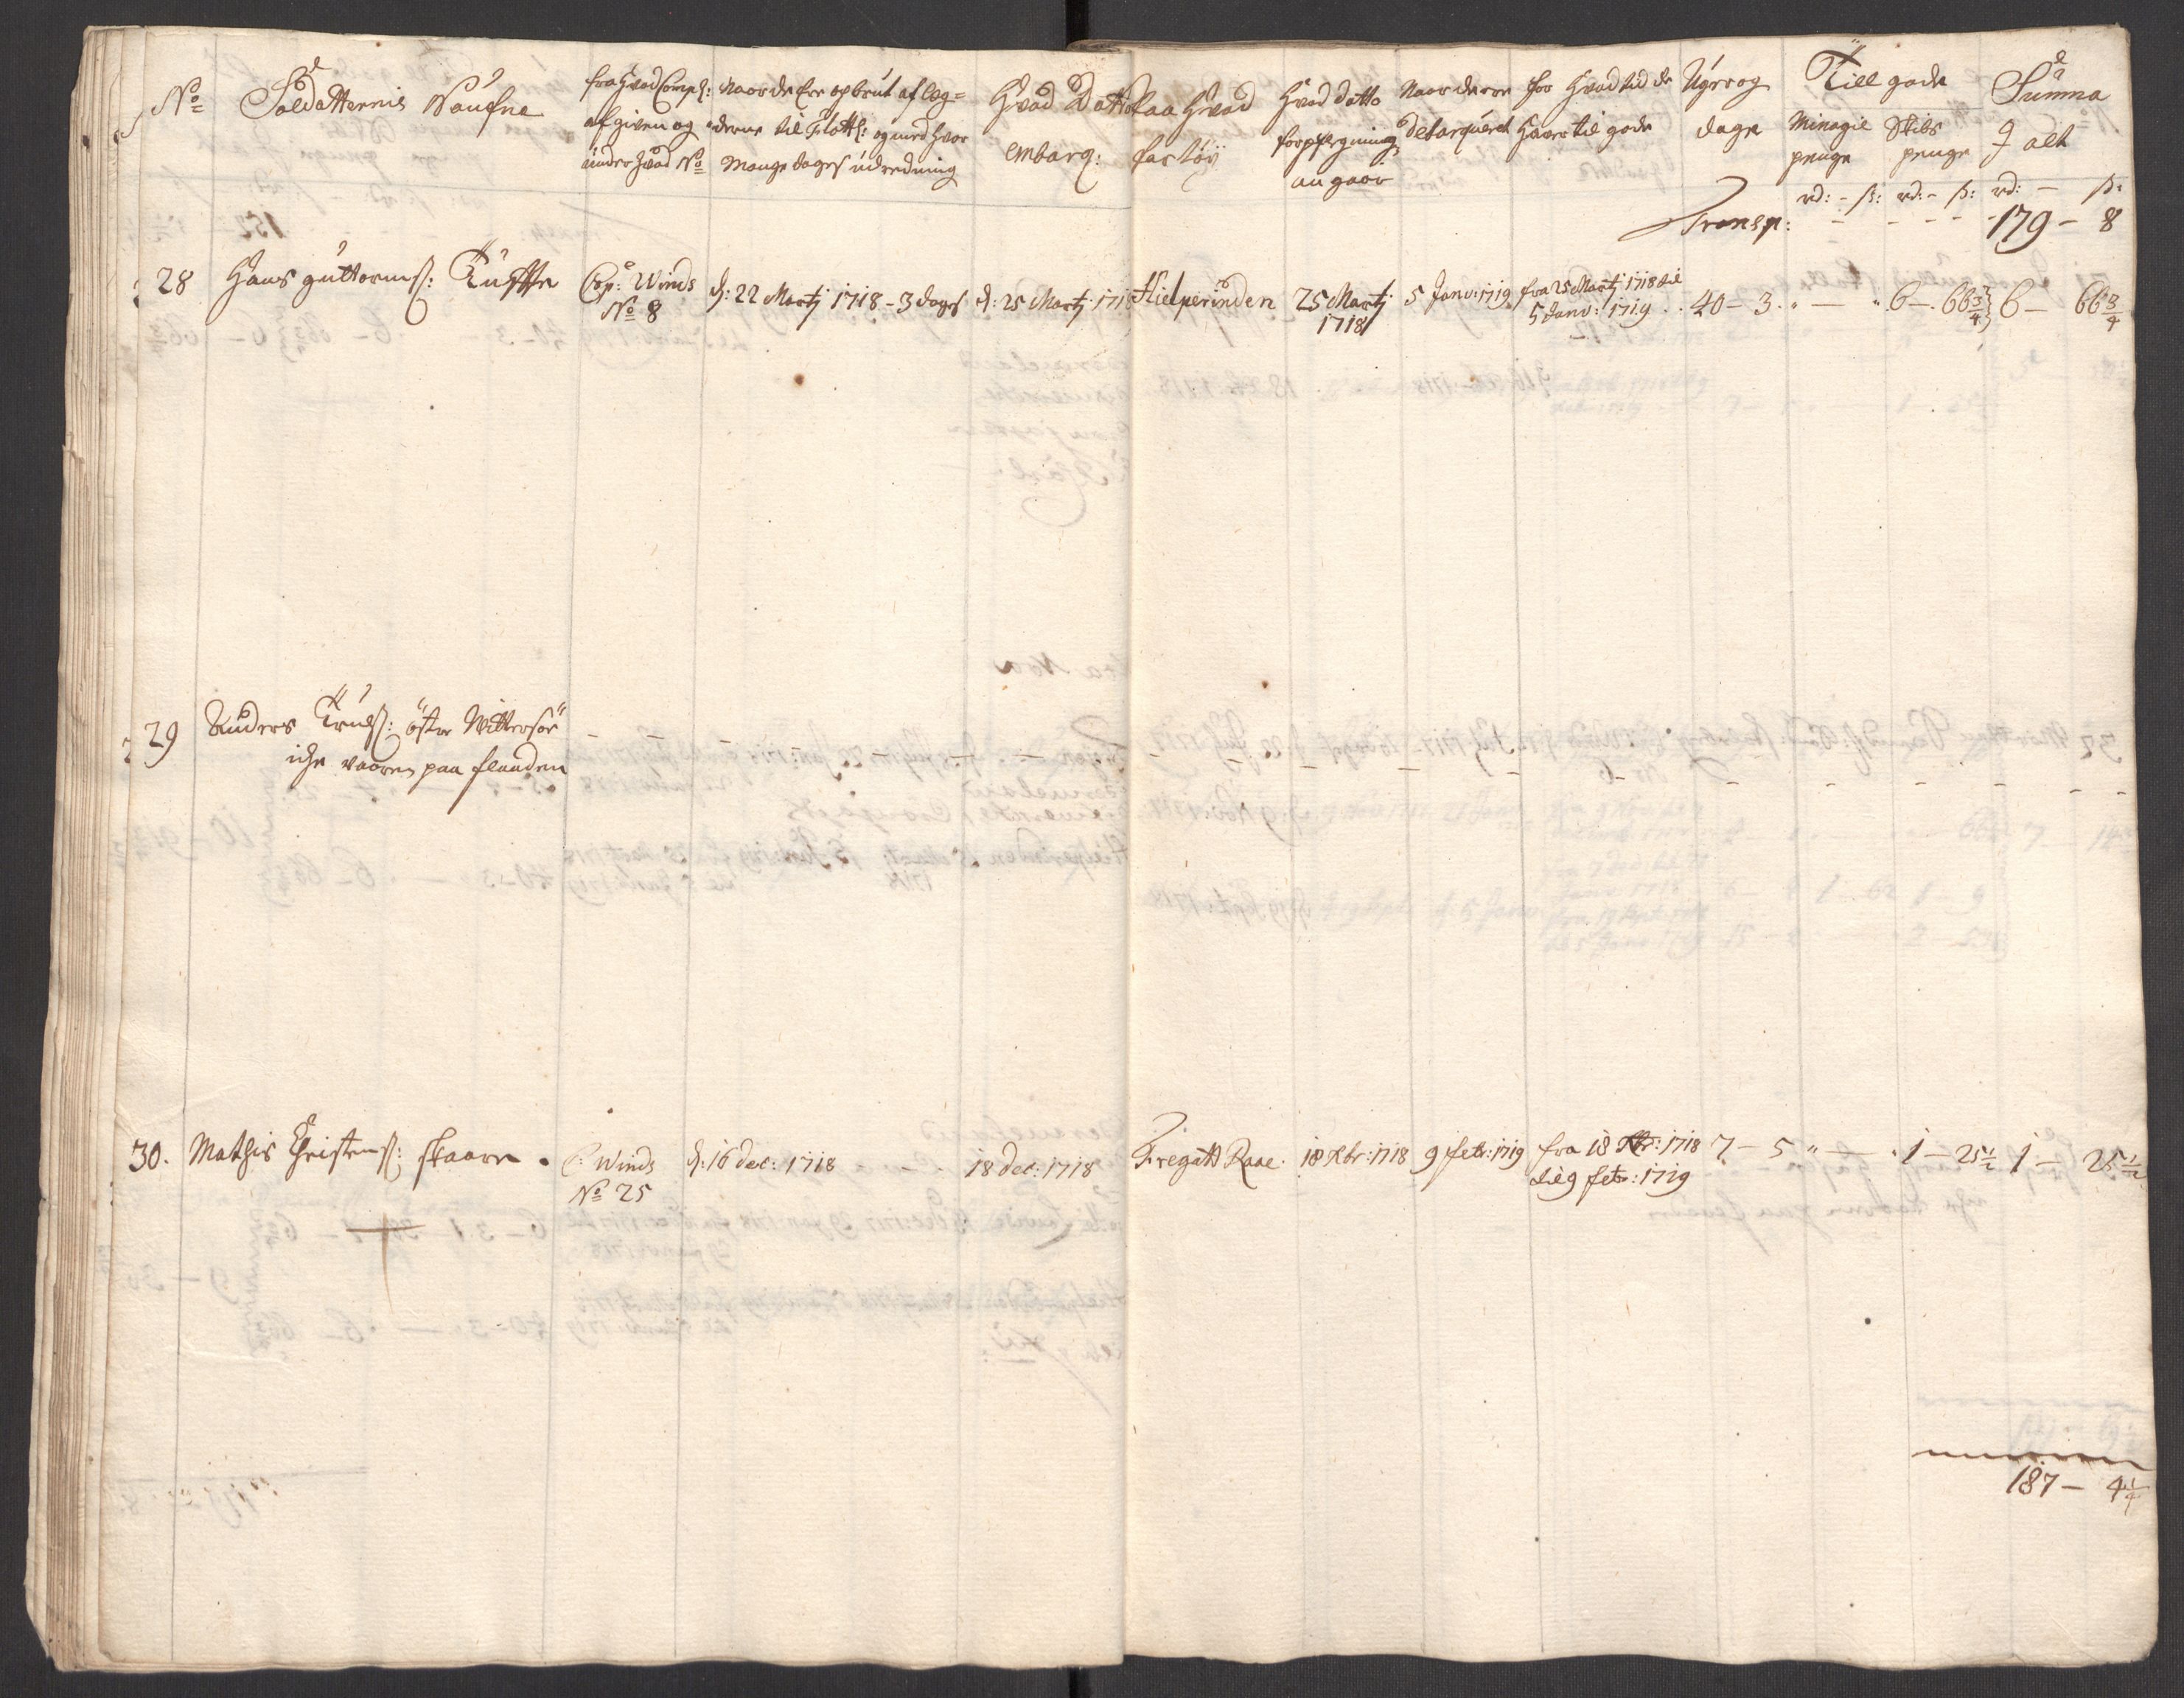 No Soldatternis Naufne
fra hvad Comp: afgiven og under hvad No
Naar de Ere opbrut af Lægderne til Flotts: og med hvor mange dages udredning
Hvad Datto embarq:
Paa Hvad fartøÿ
Hvad datto forpflegning angaar
Naar de ere debarqueret
for Hvad tid de Haver til gode
Uger og dage
Till gode
Minagie penge
Skibs penge
Summa I alt
rd: - ß: rd: - ß: rd: - ß:
Transp: - - - - 179 - 8
28 Hans guttormß: Cap: Winds No 8 d: 22 Martj 1718 - 3 dages d: 25 Martj 1718 Hielperinden 25 Martj 1718 5 Janv: 1719 fra 25 Martj 1718 til 5 Janv: 1719 40 - 3 " — " 6 - 66¾ 6 - 66¾
29 Anders öster Wittersöe
iche vaaren paa flaaden
30. Mathis Christenß: skaaren C: Winds No 25 d: 16 dec: 1718 18 dec: 1718 Fregatt Raae 18 Xbr: 1718 9 febr: 1719 fra 18 Xbr: 1718 til 9 febr: 1719 7 - 5 " — 1 - 25½ 1 - 25½
187 - 4¼